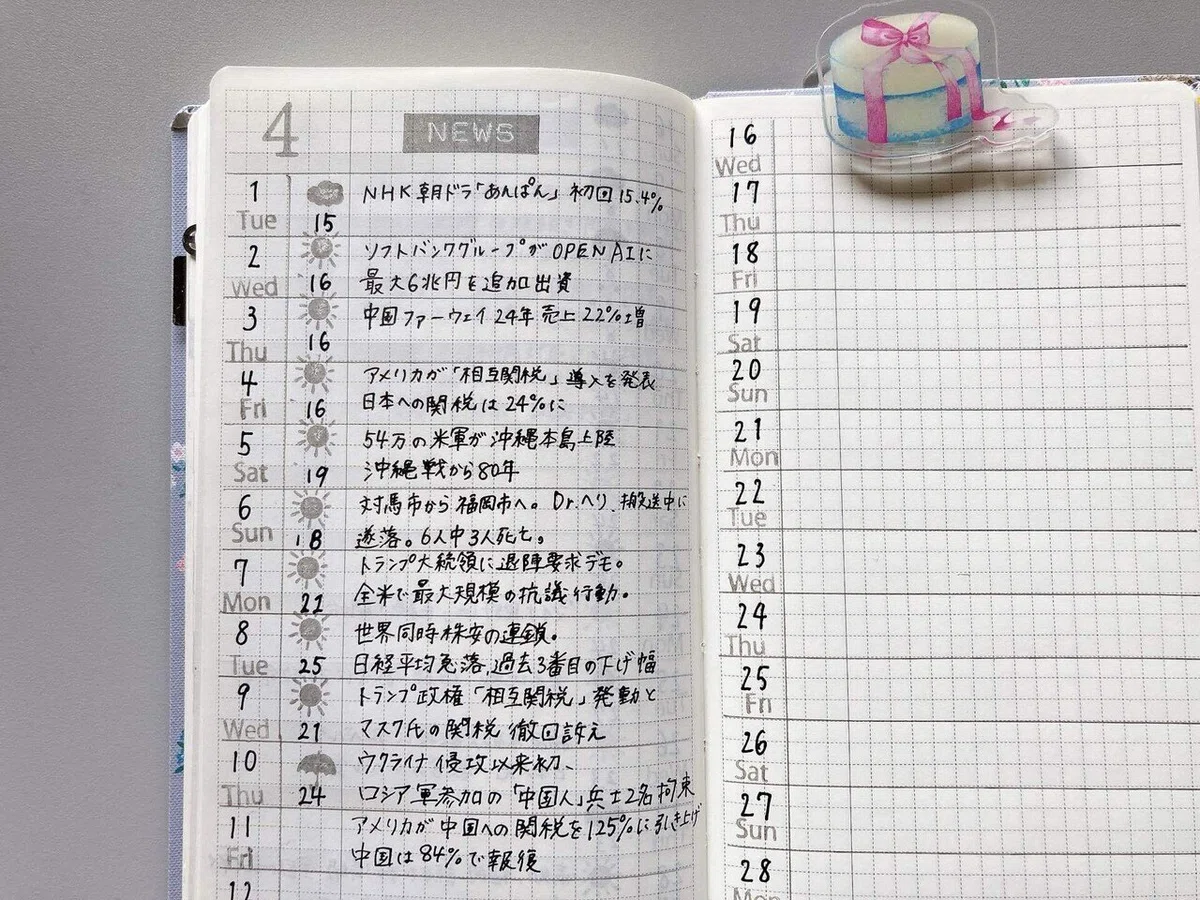 4 NEWS
1 NHK朝ドラ「あんぱん」初回15.4%
Tue 15
2 ソフトバンクグループがOPEN AIに
Wed 16 最大6兆円を追加出資
3 中国ファーウェイ24年売上22%増
Thu 16
4 アメリカが「相互関税」導入を発表
Fri 16 日本への関税は24%に
5 54万の米軍が沖縄本島上陸
Sat 19 沖縄戦から80年
6 対馬市から福岡市へ。Dr.ヘリ、搬送中に
Sun 18 墜落。6人中3人死亡。
7 トランプ大統領に退陣要求デモ。
Mon 21 全米で最大規模の抗議行動。
8 世界同時株安の連鎖。
Tue 25 日経平均急落、過去3番目の下げ幅
9 トランプ政権「相互関税」発動と
Wed 21 マスク氏の関税徹回訴え
10 ウクライナ侵攻以来初、
Thu 24 ロシア軍参加の「中国人」兵士2名拘束
11 アメリカが中国への関税を125%に引き上げ
Fri 中国は84%で報復
12
16
Wed
17
Thu
18
Fri
19
Sat
20
Sun
21
Mon
22
Tue
23
Wed
24
Thu
25
Fri
26
Sat
27
Sun
28
Mon